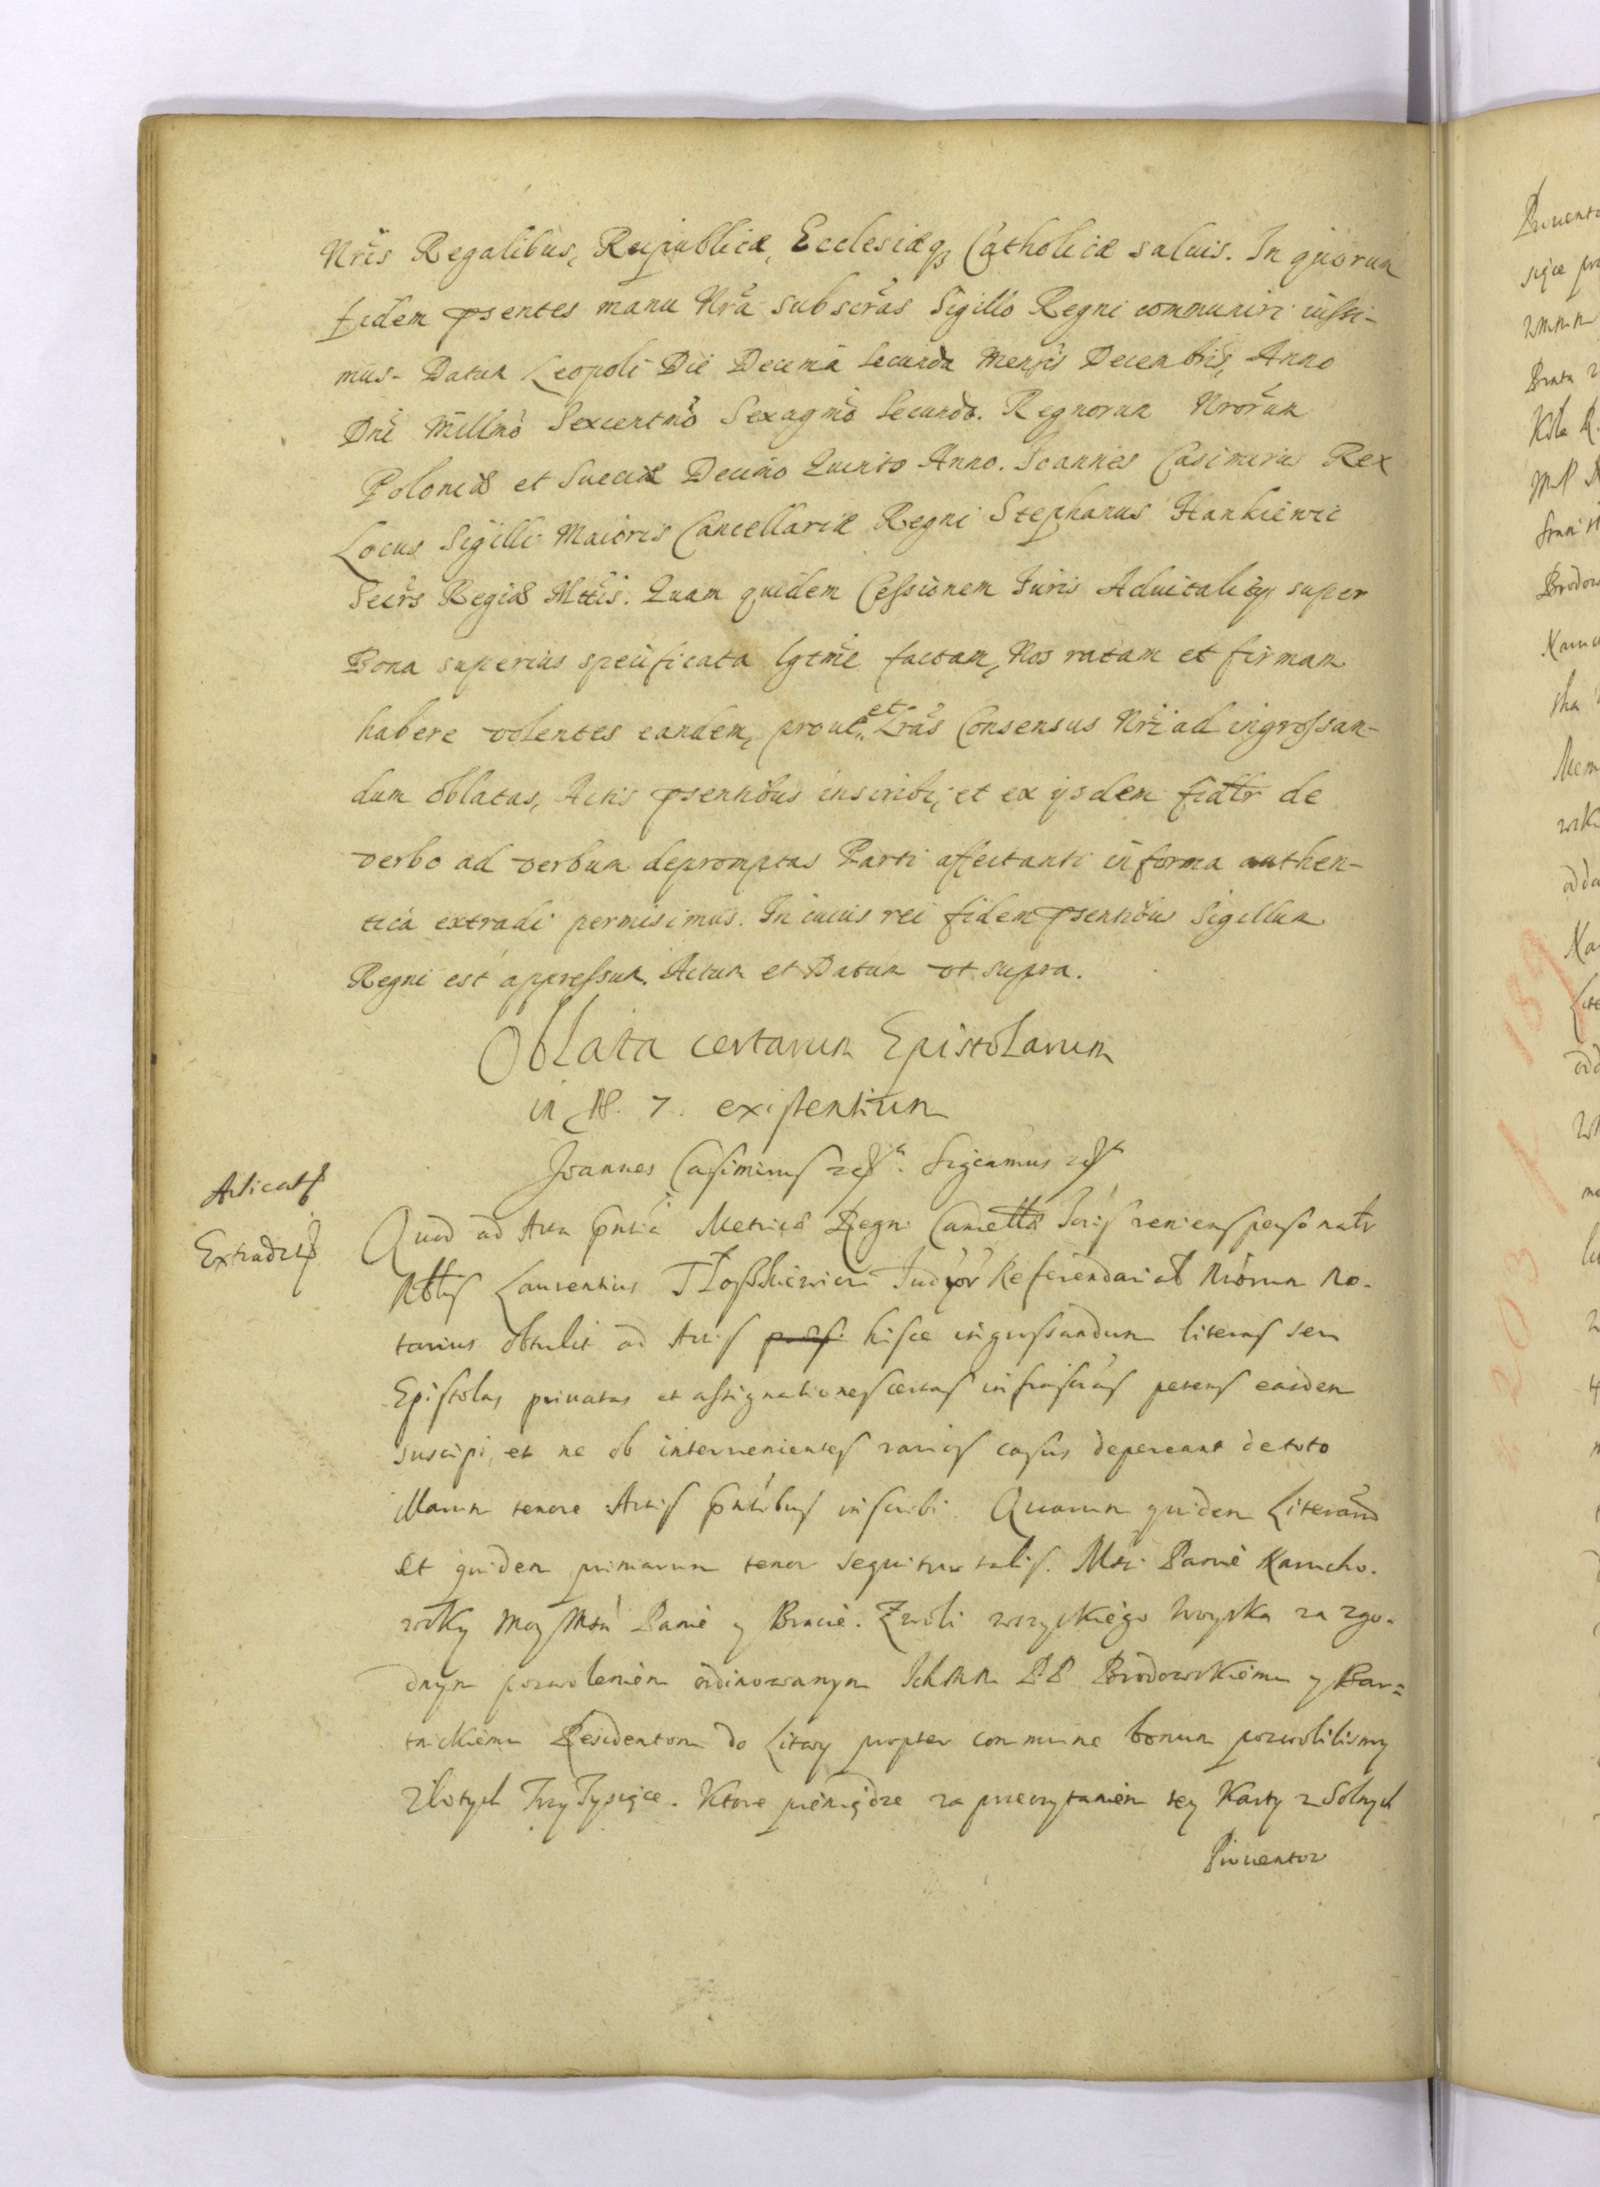 Nris Regalibus, Reipublicæ, Ecclesiæq3 Catholicæ saluis. In quorum
fidem psentes manu Nra subscras Sigillo Regni communiri iussi-
mus. Datum Leopoli Die Decima Secunda Mensis Decembris, Anno
Dni Millmo Sexcentmo Sexagmo Secundo. Regnorum Nrorum
Poloniæ et Sueciæ Decimo Quinto Anno. Joannes Casimirus Rex
Locus Sigilli Maioris Cancellariæ Regni Stephanus Hankiewic
Secrs Regiæ Mttis. Quam quidem Cessionem Juris Aduitalitij super
Bona superius specificata lgtme factam, Nos ratam et firmam
habere volentes eandem, prout et Lras Consensus Nri ad ingrossan-
dum oblatas, Actis psentibus inscribi, et ex ijsdem fidlr de
verbo ad verbum depromptas Parti affectanti in forma authen-
tica extradi permisimus. In cuius rei fidem psentibus Sigillum
Regni est appressum. Actum et Datum vt supra.
Oblata certarum Epistolarum
in N. 7. existentium
Joannes Casimirus Significamus
Quod ad Acta pntia Metricæ Regni veniens personalr
Nblis Laurentius Judior Referendarial Nrorum No-
tarius obtulit ad Actis hisce ingrossandum literas seu
Epistolas priuatas et assignationes certas infrascras petens easdem
suscipi, et ne ob interuenientes varios casus depereant de toto
illarum tenore Actis pntibus inscribi. Quarum quidem Literarum
Et quidem primarum tenor sequitur talis. Mci Panie Karucho-
wsky Moy Mci Panie y Bracie. Z woli wszystkiego Woyska za zgo-
dnym pozwoleniem ordinowanym Ich MM PP Brodowskiemu y Bar=
tnickiemu Residentom do Litwy propter commune bonum pozwolilismy
Zlotych Trzy Tysiące. Ktore pieniądze za przeczytaniem tey Karty z Solnych
Prouentow
Extradit